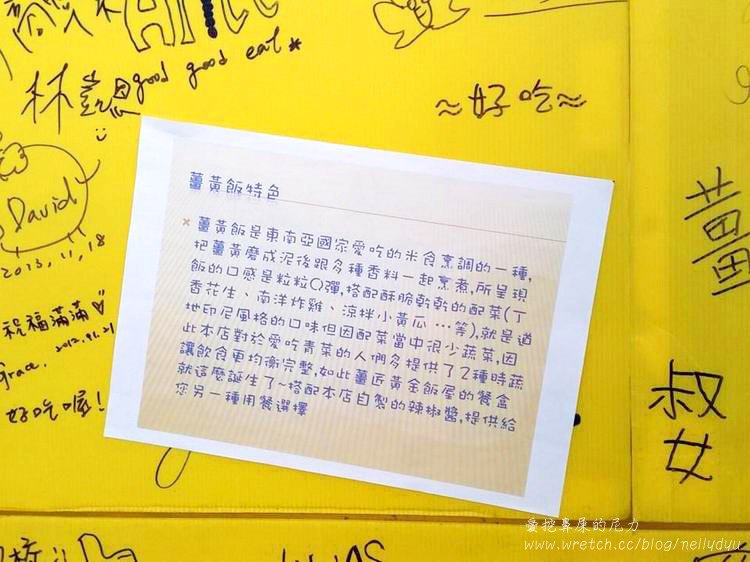 good good eat
林
≈好吃≈
David
2013,11,18
祝福滿滿
Grace. 2012.11.21
好吃喔!
薑黃飯特色
薑黃飯是東南亞國家愛吃的米食烹調的一種,
把薑黃磨成泥後跟多種香料一起烹煮,所呈現
飯的口感是粒粒Q彈,搭配酥脆乾乾的配菜(丁
香花生、南洋炸雞、涼拌小黃瓜…等),就是道
地印尼風格的口味但因配菜當中很少蔬菜,因
此本店對於愛吃青菜的人們多提供了2種時蔬
讓飲食更均衡完整,如此薑匠黃金飯屋的餐盒
就這麼誕生了~搭配本店自製的辣椒醬,提供給
您另一種用餐選擇
薑
叔
女
愛挖鼻屎的尼力
www.wretch.cc/blog/nellydyu